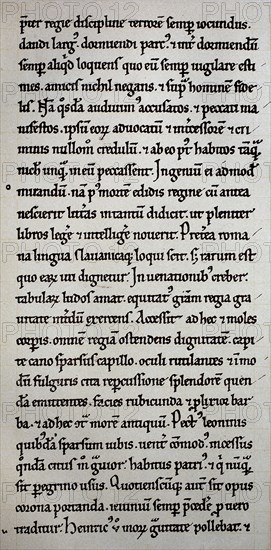 pter regie discipline terrore semp iocundus.
dandi larg⁹. dormiendi parc⁹. & int dormiendū
semp aliqd loquens quo eū semp uigilare esti
mes. amicis nichil negans. & sup hominē fide
lis. Nā qsdā auditum accusatos. & peccati ma
nifestos. ipsum eoꝝ aduocatū & intcessorē & cri
minis nullom credulū. & ab eo pt habitos taqꝫ
nich unqꝫ in eum peccassent. Ingeniū ei admodū
mirandū. nā p mortē edidis regine cum antea
nescierit litas in tantū didicit. ut pleniter
libros legere & intelligere nouerit. Pterea roma
na lingua sclauanicaqꝫ loqui scit. sꝫ rarum est
quo eaꝝ uti dignetur. In uenationibꝰ creber.
tabulaꝝ ludos amat. equitatꝰ gram regia gra
uitate intdū exercens. Accessit ad hec & moles
corpis. omnē regiā ostendens dignitatē. capi
te cano sparsus capillo. oculi rutilantes & imo
dū fulguris cita repcussione splendorē quen
dā emittentes. facies rubicunda & plixior bar
ba. & ad hec qt morē antiquū. Pectꝰ leoninis
quibꝰdā sparsum iubis. uent comodꝰ. incessus
qndā citus m grauior. habitus patriꝰ. & q nūqꝫ
sit peregrino usus. Quotienscūqꝫ aut sit opus
corona portanda. ieiuniū semp pcede puero
traditur. Heinricꝰ uo morū grauitate pollebat. &